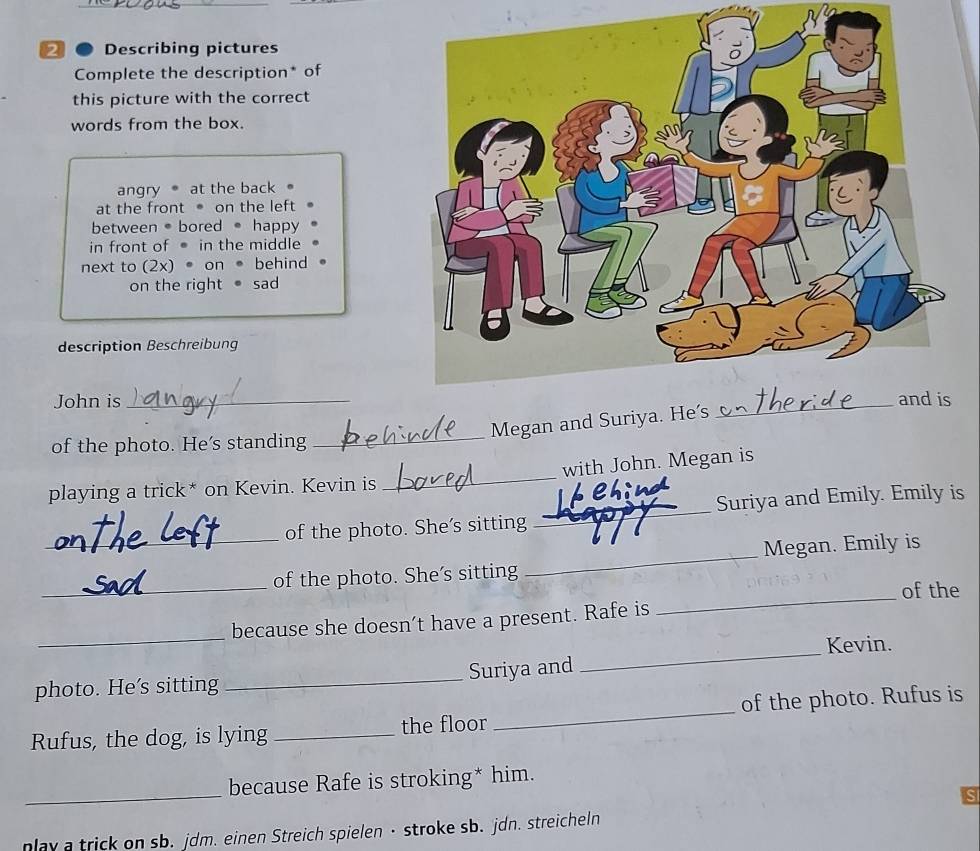 nervous
2 ● Describing pictures
Complete the description* of
this picture with the correct
words from the box.
angry • at the back •
at the front • on the left •
between • bored • happy •
in front of • in the middle •
next to (2x) • on • behind •
on the right • sad
description Beschreibung
John is angry
of the photo. He's standing behinde Megan and Suriya. He's on the ride and is
playing a trick* on Kevin. Kevin is bored with John. Megan is
on the left of the photo. She's sitting happy behind Suriya and Emily. Emily is
sad of the photo. She's sitting Megan. Emily is
because she doesn't have a present. Rafe is of the
photo. He's sitting Suriya and Kevin.
Rufus, the dog, is lying the floor of the photo. Rufus is
because Rafe is stroking* him.
play a trick on sb. jdm. einen Streich spielen • stroke sb. jdn. streicheln